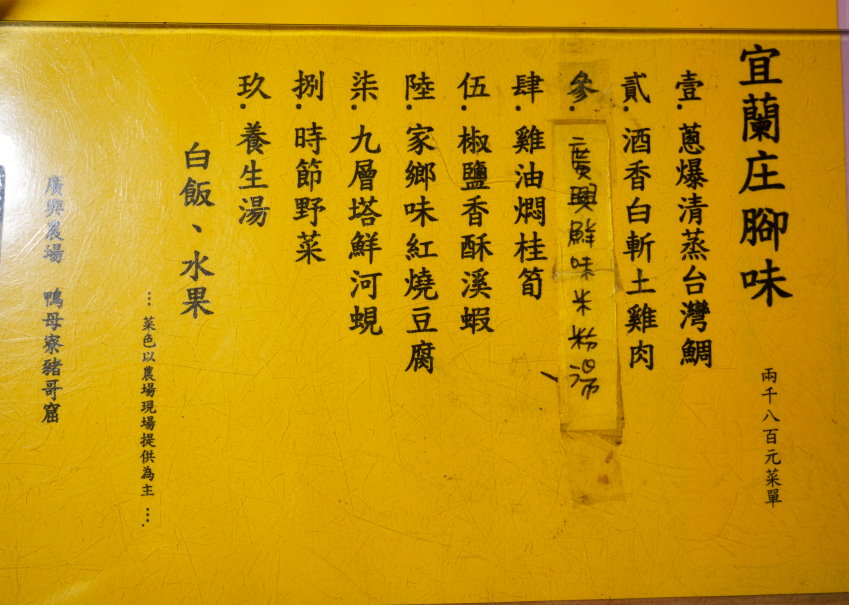 宜蘭庄腳味
兩千八百元菜單
壹.蔥爆清蒸台灣鯛
貳.酒香白斬土雞肉
參.廣興鮮味米粉湯
肆.雞油燜桂筍
伍.椒鹽香酥溪蝦
陸.家鄉味紅燒豆腐
柒.九層塔鮮河蜆
捌.時節野菜
玖.養生湯
白飯、水果
…菜色以農場現場提供為主….
廣興農場 鴨母寮豬哥窟